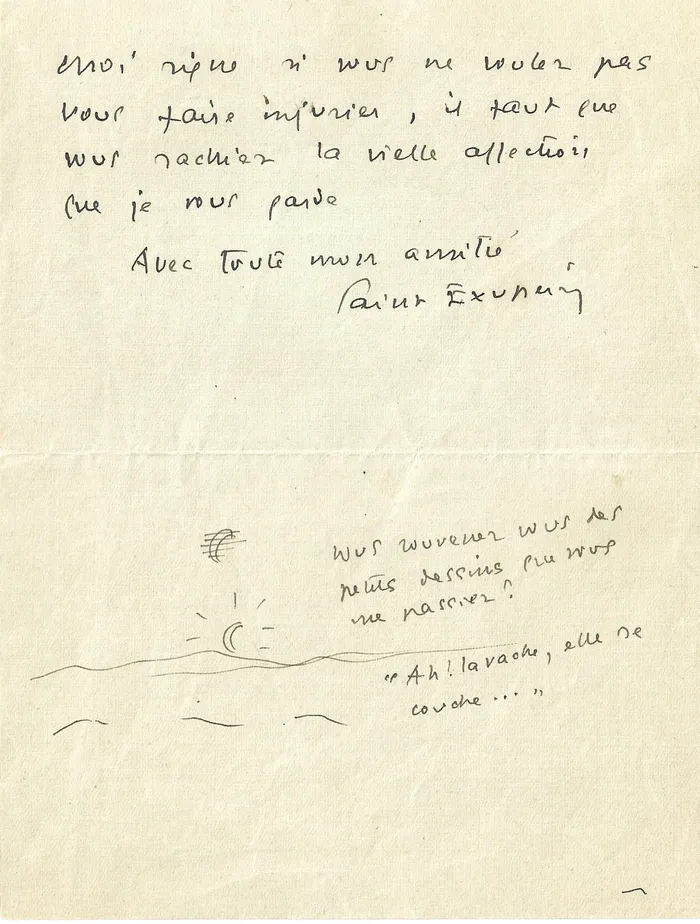 moi signe si vous ne voulez pas
vous faire injurier, il faut que
vous sachiez la vielle affection
que je vous garde
Avec toute mon amitié
Saint Exupéry
vous souvenez vous des
petits dessins que vous
me passiez?
"Ah! la vache, elle se
couche ... "